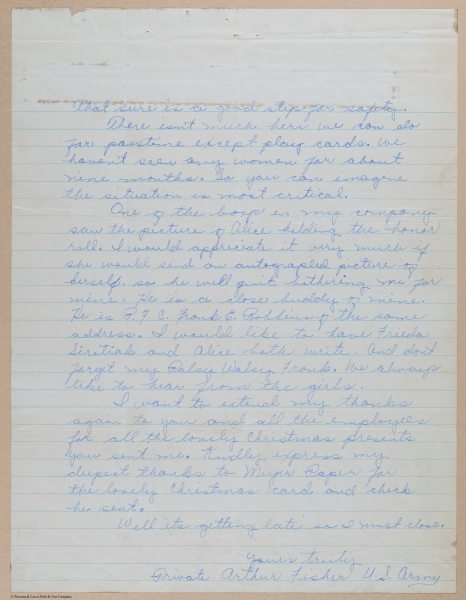 That sure is a good step for safety.
There isn't much here we can do
for passtime except play cards. We
haven't seen any women for about
nine months. So you can imagine
the situation is most critical.
One of the boys in my company
saw the picture of Alice holding the honor
roll. I would appreciate it very much if
she would send an autographed picture of
herself so he will quit bothering me for
mine. He is a close buddy of mine.
He is P.F.C. Frank E. Robbins of the same
address. I would like to have Freeda
and Alice both write. And don't
forget my Palsy Walsy Frank. We always
like to hear from the girls.
I want to extend my thanks
again to you and all the employees
for all the lovely Christmas presents
you sent me. Kindly express my
deepest thanks to Meyer Paper for
the lovely Christmas card and check
he sent.
Well its getting late so I must close.
Yours truly
Private Arthur Fisher U.S. Army